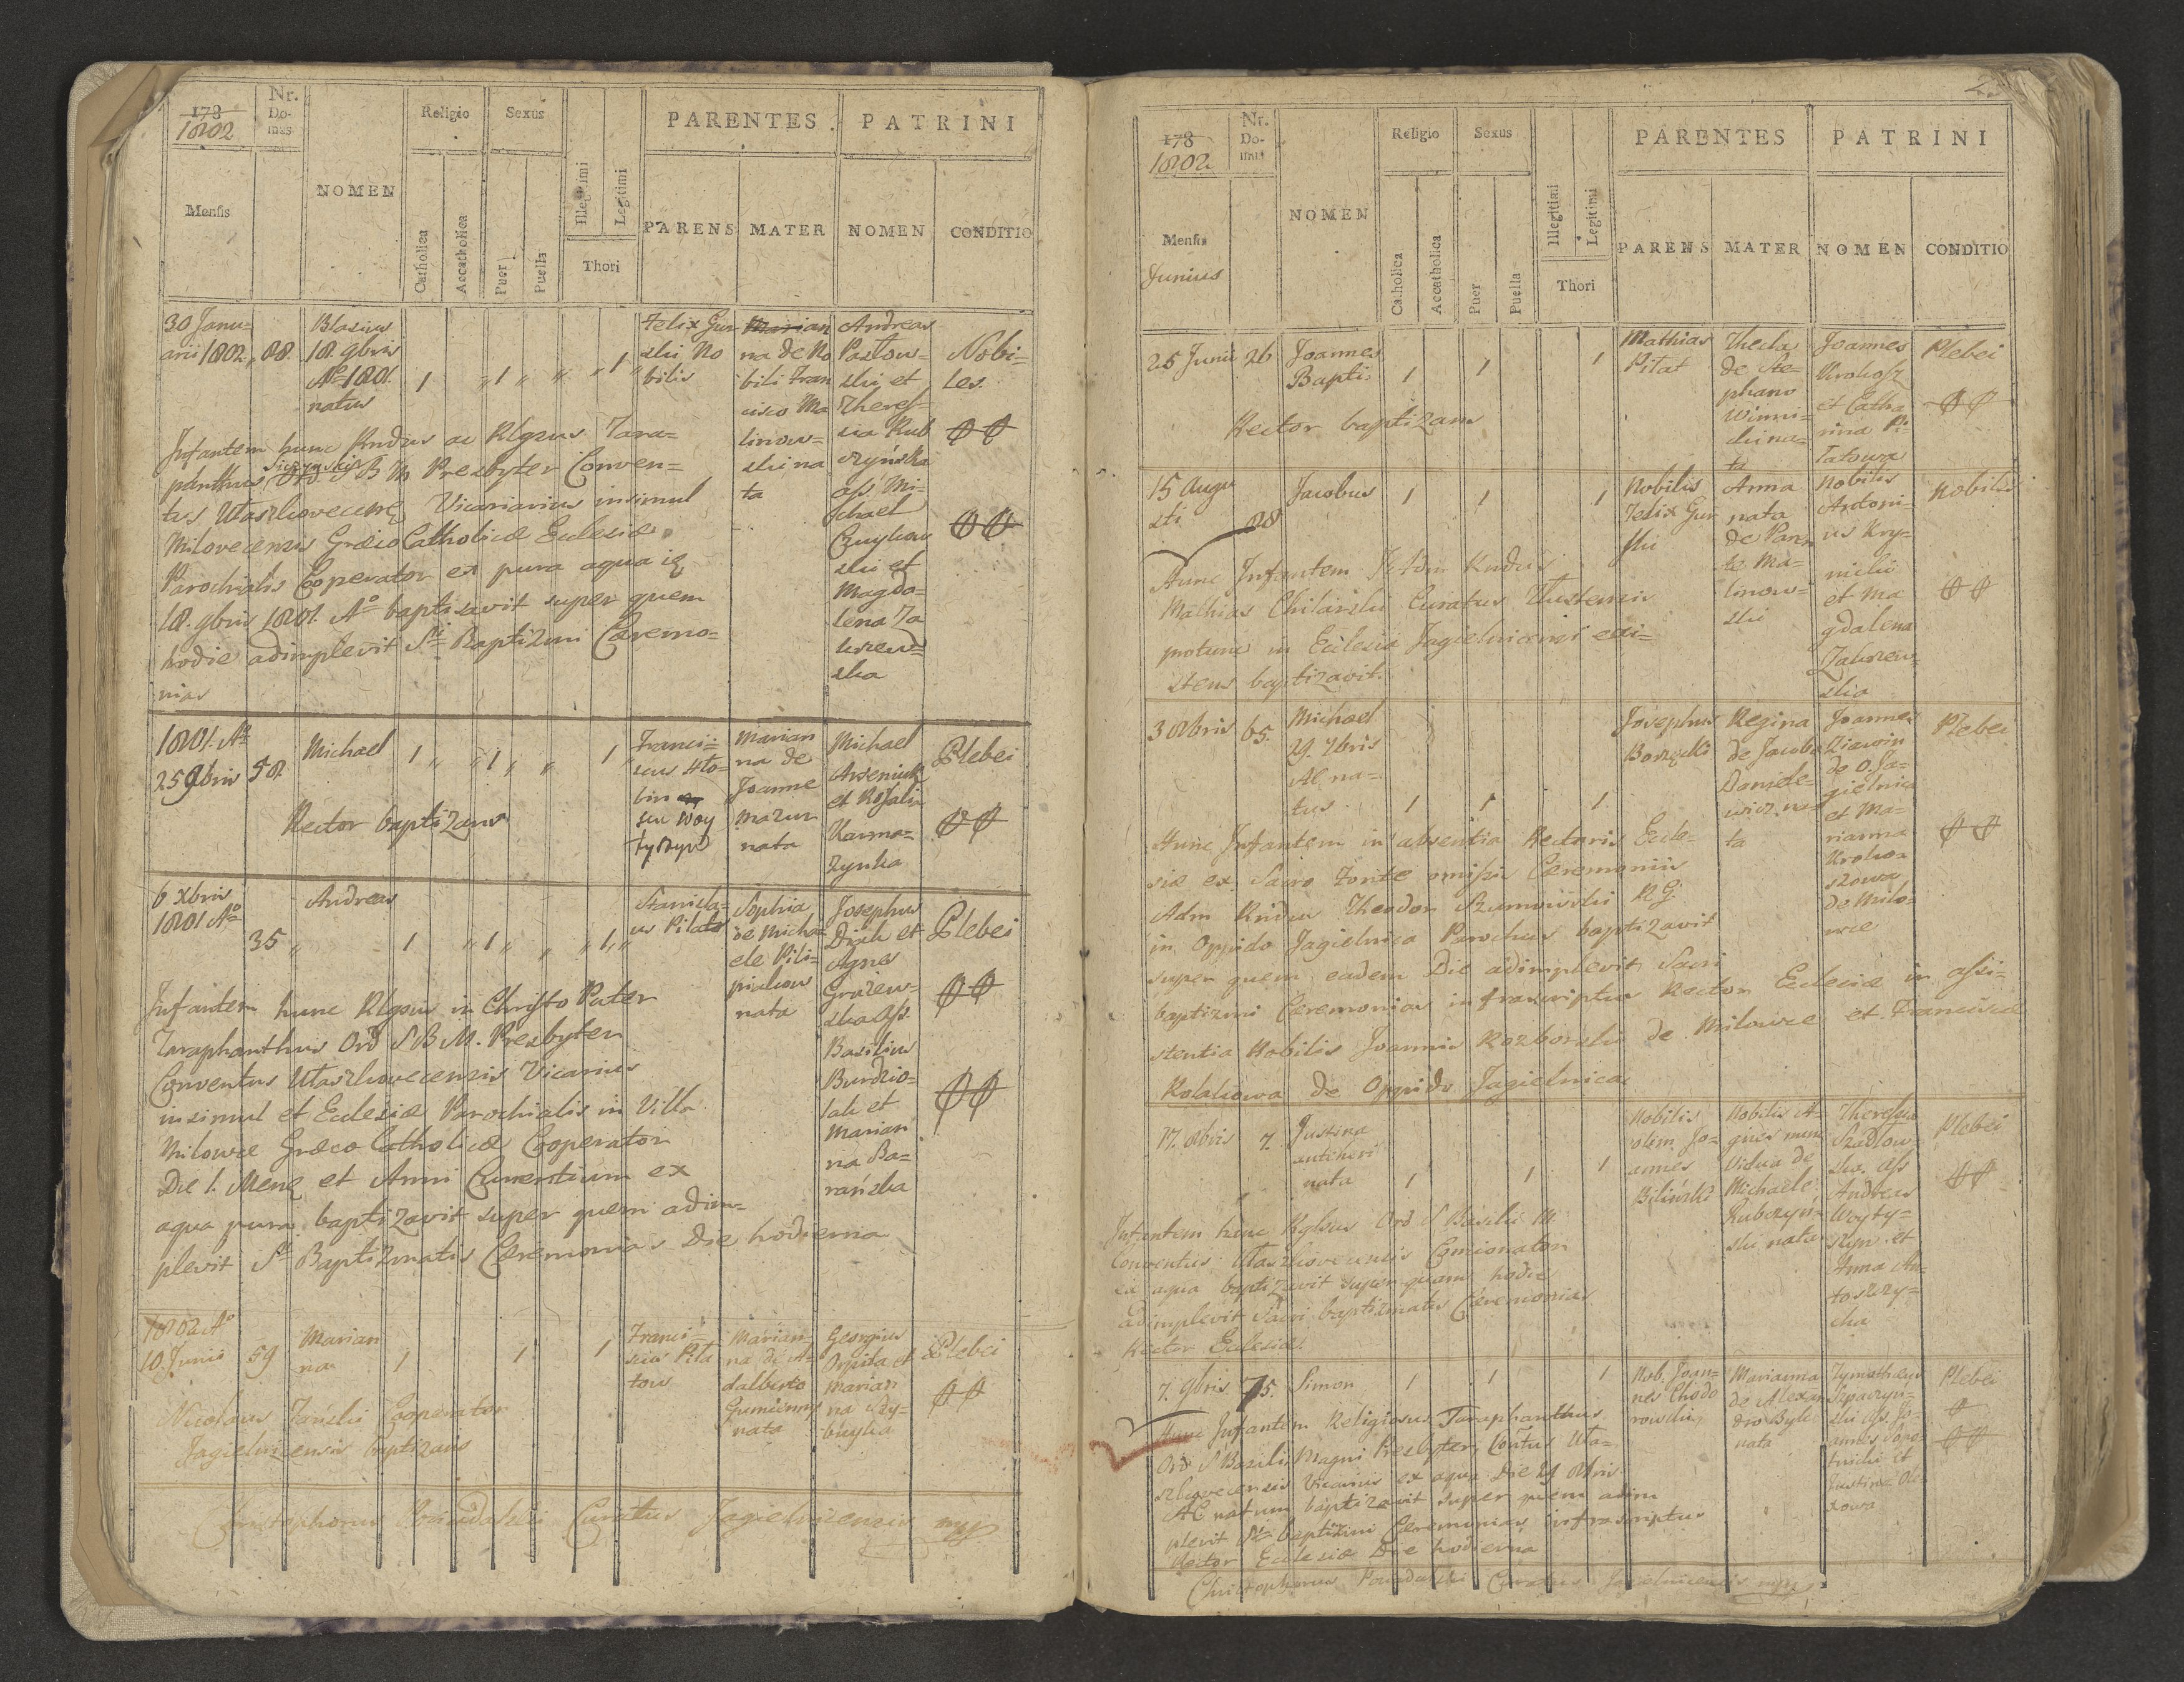 178
1802
Nr.
Do-
mus
Mensis
NOMEN
Religio
Catholica
Accatholica
Sexus
Puer
Puella
Illegitimi
Legitimi
Thori
PARENTES
PARENS
MATER
PATRINI
NOMEN
CONDITIO
30 Janu=
arii 1802
88.
Blasius
18. 9bris
Ao 1801.
natus
1 " 1 " " " 1 "
Felix Gur
ski No
bilis
Marian
na de No
bili Fran
cisco Ma
linow=
ski na
ta
Andreas
Pastow=
ski et
Theres=
sia Rub
czyńska
ass. Mi=
chael
Czuykow
ski et
Magda=
lena Za
krzew=
ska
Nobi=
les.
Infantem hunc Rndus ac Rlgsus Tara=
phanthus Ord. S B M Presbyter Conven=
tus Utaszkovecens Vicariarius insimul
Milovecensis Græco Catholicæ Eclesiæ
Parochialis Cooperator ex pura aqua
18. 9bris 1801. Ao baptisavit super quem
hodie adimplevit Sti Baptizmi Cæremo=
nias
1801. Ao
25 9bris
58.
Michael
1 " " 1 " " 1 "
Franci=
scus
seu Woy
tyszyn
Marian
na de
Joanne
Mazur
nata
Michael
Arseniuk
et Rosalia
Karma=
zynka
Plebei
Rector baptizans
6 xbris
1801 Ao
35 "
Andreas
1 " 1 " " " 1 "
Stanisla=
us Pilato
Sophia
de Micha
ele Pili=
piakow
nata
Josephus
Dziak et
Agnes
Grażew=
ska ass.
Basilius
Burdzio=
lak et
Marian
na Ba=
rańska
Plebei
Infantem hunc Rlgsus in Christo Pater
Taraphanthus Ord S B M. Presbyter
Conventus Utaszkovecensis Vicarius
insimul et Eclesiæ Parochialis in Villa
Milowce Græco Catholicæ Cooperator
Die 1. Mens et Anni Currentium ex
aqua pura baptizavit super quem adim=
plevit Sti Baptizmatis Cæremonias Die hodierna
1802 Ao
10. Junii
59
Marian
na
1 1 1
Franci=
scus Pila
tow
Marian=
na de A=
dalberto
Gumienny
nata
Georgius
Orpita et
Marian
na Szy=
buyka
Plebei
Nicolaus Zański Cooperator
Jagielnicensis baptizans
Christophorus Poniadalski Curatus Jagielnicensis mp
2
178
1802
Nr.
Do-
mus
Mensis
Junius
NOMEN
Religio
Catholica
Accatholica
Sexus
Puer
Puella
Illegitimi
Legitimi
Thori
PARENTES
PARENS
MATER
PATRINI
NOMEN
CONDITIO
25 Junii
26
Joannes
Bapti:
1 1 1
Mathias
Pilat
Thecla
de Ste=
phano
Winni=
ski na=
ta
Joannes
Krokosz
et Catha
rina Pi=
latowa
Plebei
Rector baptizans
15 Augu
sti
28
Jacobus
1 1 1
Nobilis
Felix Gur
ski
Anna
nata
de Paren
te Ma=
linow=
ski
Nobilis
Antoni=
us Kry=
nicki
et Ma
gdalena
Zakrzew=
ska
Nobilis
Hunc Infantem Rndus
Mathias Chilarski Curatus Tlustensis
protunc in Eclesia Jagielnicensi exi=
stens baptizavit.
3 8bris
65.
Michael
29. 7bris
AC na=
tus
1 1 1
Josephus
Borzęcki
Regina
de Jacobo
Daniele=
wicz na=
ta
Joannes
Kiawin
de O. Ja=
gielnica
et Ma=
rianna
Kroko=
szowa
de Milo=
wce
Plebei
Hunc Infantem in absentia Rectoris Ecle=
siæ ex Sacro Fonte omissis Cæremoniis
Adm Rndus Theodor Szumowski R G
in Oppido Jagielnica Parochus baptizavit
super quem eadem Die adimplevit Sacri
baptizmi Cæremonias infrascriptus Rector Eclesiæ in assi=
stentia Nobilis Joannis Rozborski de Milowce et Franciscæ
Kolakowa de Oppido Jagielnica
17. 8bris
7.
Justina
antiheri
nata
1 1 1
Nobilis
olim Jo=
annes
Biliński
Nobilis A=
gnes nunc
Vidua de
Michaele
Rubczyń=
ski nata
Theressia
Szadłow=
ska. ass
Andreas
Woyty=
szyn et
Anna An=
toszczy=
cha
Plebei
Infantem hunc Rglsus Ord S Basilii M
Conventus Utaszkovecensis Concionator
ex aqua baptizavit super quam hodie
adimplevit Sacri baptizmatis Cæremonias
Rector Eclesiæ
7. 9bris
75.
Simon
1 1 1
Nob. Joan=
nes Chodo
rowski
Marianna
de Alexan
dro Byle
nata
Tymotheus
Slipaczyn=
ski ass. Jo=
annes Sopo=
tnicki et
Justina Ole
xowa
Plebei
Hunc Infantem Religiosus Taraphanthus
Ord S Basilii Magni Presbyter Contus Uta=
szkovecensis Vicarius ex aqua Die 29 8bris
AC natum baptizavit super quem adim
plevit Sti baptizmi Cæremonias infrascriptus
Rector Eclesiæ Die hodierna
Christophorus Poniadalski Curatus Jagielnicensis mp